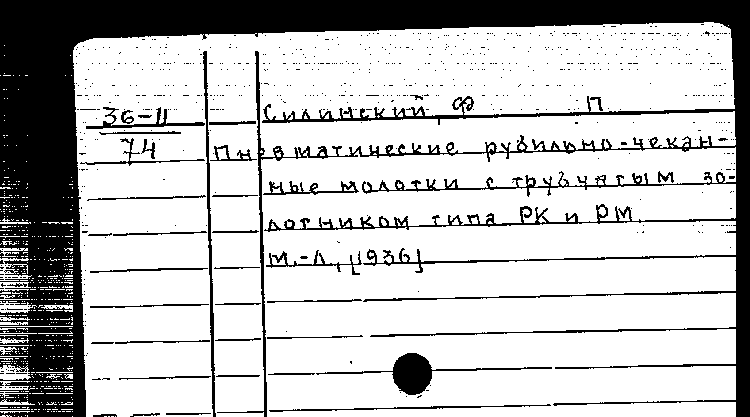 36-11 Силинский, Ф П
74 Пневматические рубильно-чекан-
ные молотки с трубчатым зо-
лотником типа РК и РМ.
М.-Л., [1936]